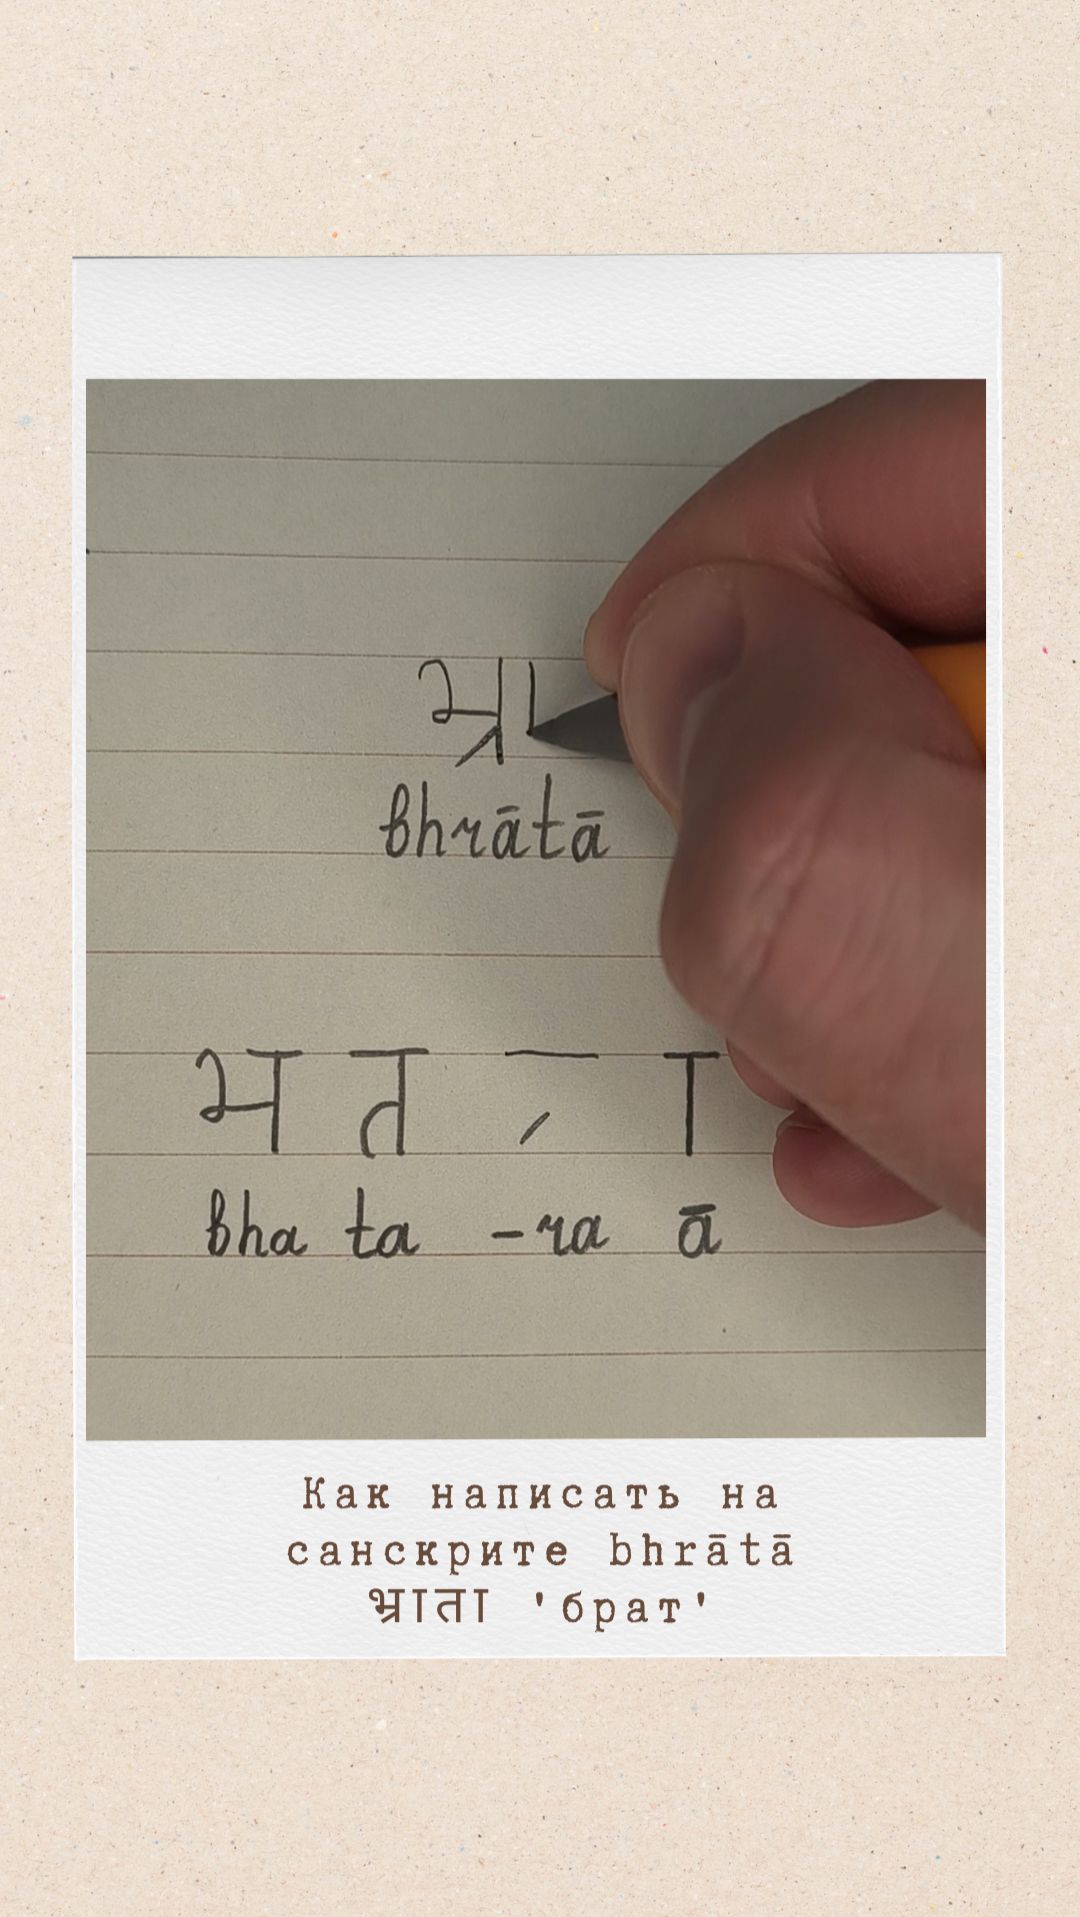 भ्रा
bhrātā
भ त ्र ा
bha ta -ra ā
Как написать на
санскрите bhrātā
भ्राता 'брат'